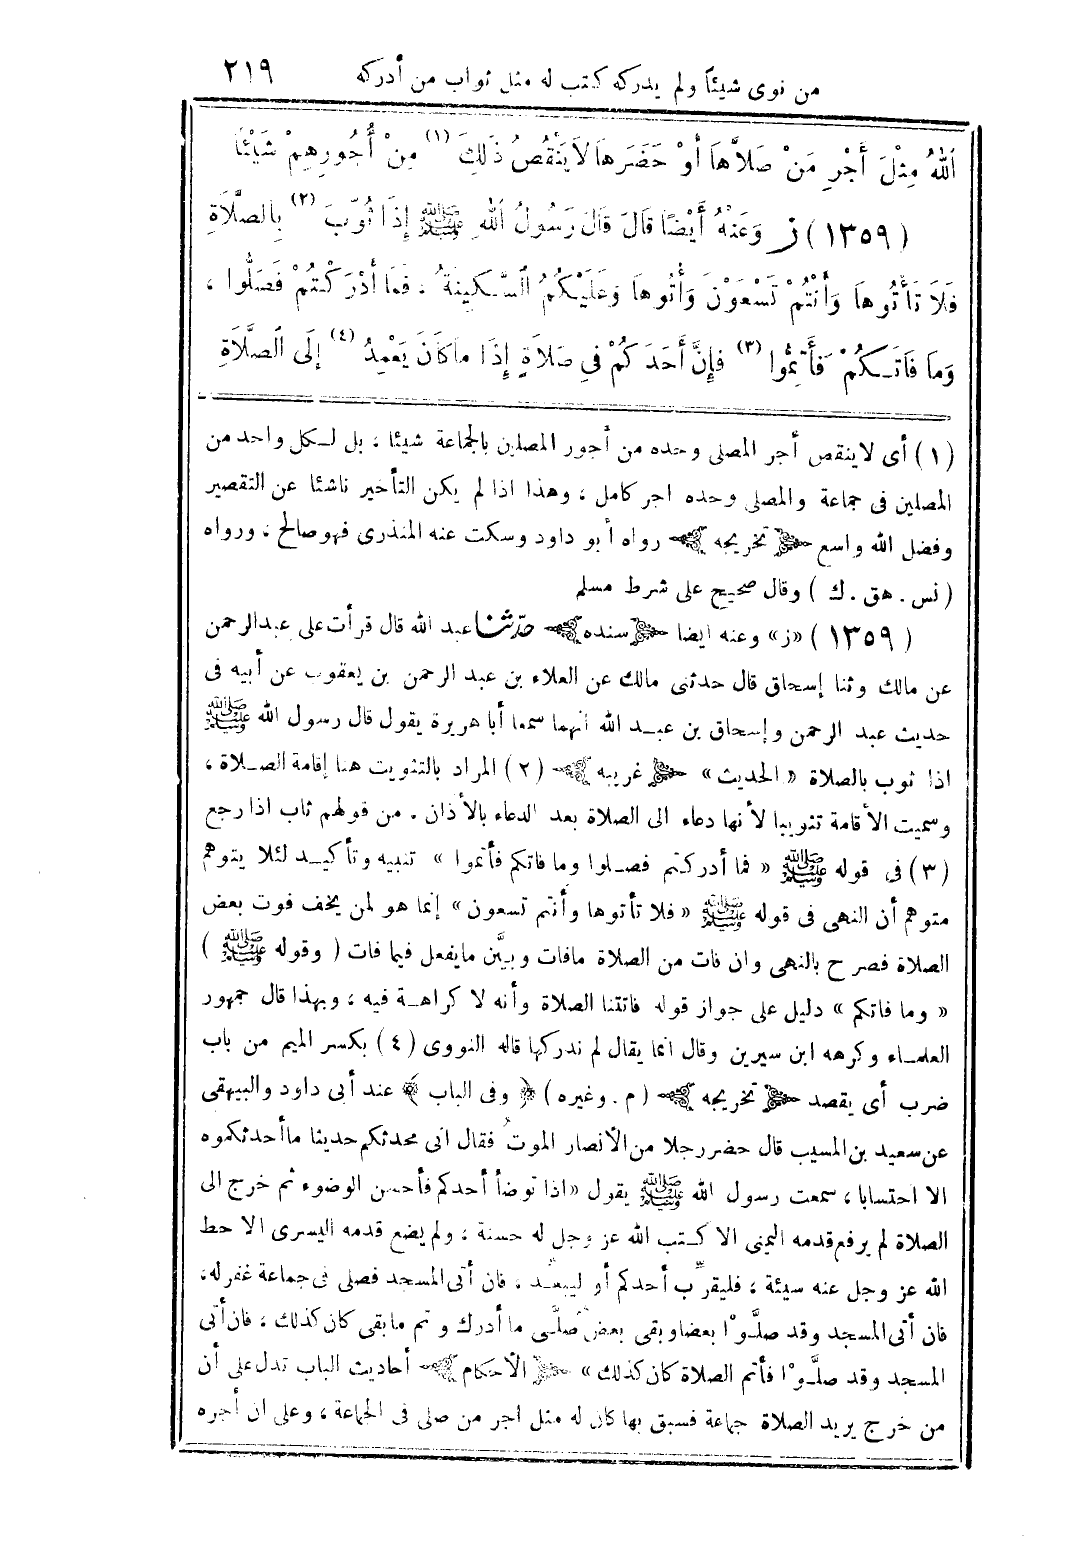 من نوى شيئاً ولم يدركه كتب له مثل ثواب من أدركه
٢١٩
اَللهُ مِثْلَ أَجْرِ مَنْ صَلاَّهَا أَوْ حَضَرَهَا لاَ يَنْقُصُ ذَلِكَ (١) مِنْ أُجُورِهِمْ شَيْئًا
(١٣٥٩) ز وَعَنْهُ أَيْضًا قَالَ قَالَ رَسُولُ اللهِ ﷺ إِذَا ثُوِّبَ (٢) بِالصَّلَاةِ
فَلاَ تَأْتُوهَا وَأَنْتُمْ تَسْعَوْنَ وَأْتُوهَا وَعَلَيْكُمُ السَّكِينَةُ ، فَمَا أَدْرَكْتُمْ فَصَلُّوا ،
وَمَا فَاتَكُمْ فَأَتِمُّوا (٣) فَإِنَّ أَحَدَكُمْ فِي صَلاَةٍ إِذَا مَا كَانَ يَعْمِدُ (٤) إِلَى الصَّلاَةِ
(١) أى لاينقص أجر المصلى وحده من أجور المصلين بالجماعة شيئا ، بل لكل واحد من
المصلين فى جماعة والمصلى وحده اجر كامل ، وهذا اذا لم يكن التأخير ناشئا عن التقصير
وفضل الله واسع ﴿ تخريجه ﴾ رواه أبو داود وسكت عنه المنذرى فهو صالح ، ورواه
( نس . هق . ك ) وقال صحيح على شرط مسلم
(١٣٥٩) «ز» وعنه ايضا ﴿ سنده ﴾ حدّثنا عبد الله قال قرأت على عبدالرحمن
عن مالك وثنا إسحاق قال حدثنى مالك عن العلاء بن عبد الرحمن بن يعقوب عن أبيه فى
حديث عبد الرحمن وإسحاق بن عبد الله انهما سمعا أبا هريرة يقول قال رسول الله ﷺ
اذا ثوب بالصلاة « الحديث » ﴿ غريبه ﴾ (٢) المراد بالتثويت هنا إقامة الصلاة ،
وسميت الأقامة تثويبا لأنها دعاء الى الصلاة بعد الدعاء بالأذان . من قولهم ثاب اذا رجع
(٣) فى قوله ﷺ « فما أدركتم فصلوا وما فاتكم فأتموا » تنبيه وتأكيد لئلا يتوهم
متوهم أن النهى فى قوله ﷺ « فلا تأتوها وأنتم تسعون » إنما هو لمن يخف فوت بعض
الصلاة فصرح بالنهى وان فات من الصلاة مافات وبيَّن مايفعل فيما فات ( وقوله ﷺ )
« وما فاتكم » دليل على جواز قوله فاتتنا الصلاة وأنه لا كراهة فيه ، وبهذا قال جمهور
العلماء وكرهه ابن سيرين وقال انما يقال لم ندركها قاله النووى (٤) بكسر الميم من باب
ضرب أى يقصد ﴿ تخريجه ﴾ ( م . وغيره ) ﴿ وفى الباب ﴾ عند أبى داود والبيهقى
عن سعيد بن المسيب قال حضر رجلا من الأنصار الموتُ فقال انى محدثكم حديثا ما أحدثكموه
الا احتسابا ، سمعت رسول الله ﷺ يقول « اذا توضأ أحدكم فأحسن الوضوء ثم خرج الى
الصلاة لم يرفع قدمه اليمنى الا كتب الله عز وجل له حسنة ، ولم يضع قدمه اليسرى الا حط
الله عز وجل عنه سيئة ، فليقرِّب أحدكم أو ليبعِّد ، فان أتى المسجد فصلى فى جماعة غفر له،
فان أتى المسجد وقد صلَّوْا بعضا وبقى بعض صلَّى ما أدرك و تم مابقى كان كذلك ، فان أتى
المسجد وقد صلَّوْا فأتم الصلاة كان كذلك » ﴿ الأحكام ﴾ أحاديث الباب تدل على أن
من خرج يريد الصلاة جماعة فسبق بها كان له مثل اجر من صلى فى الجماعة ، وعلى ان أجره